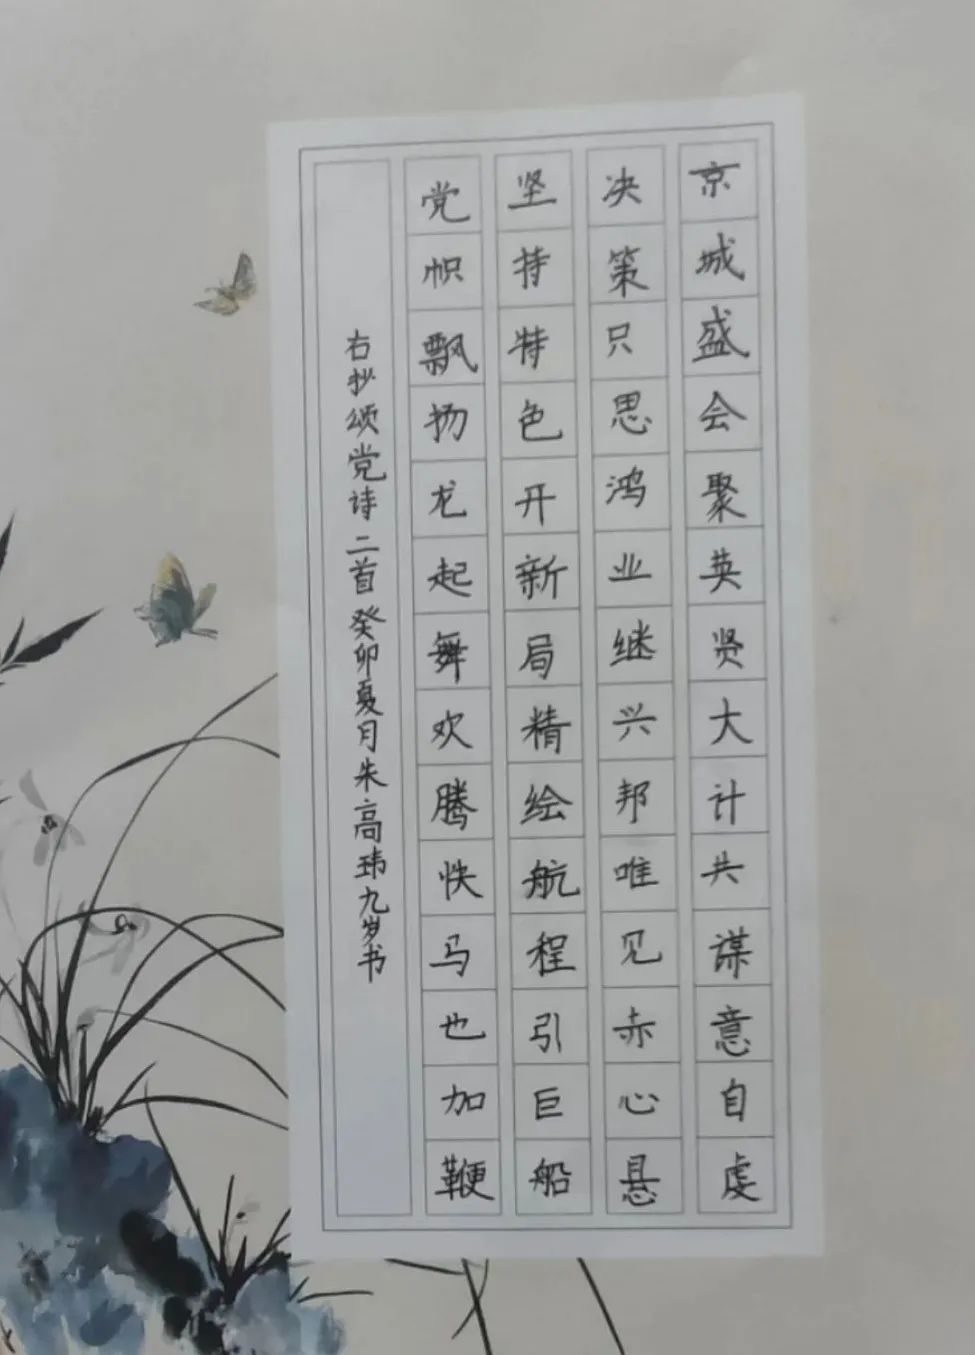 京城盛会聚英贤大计共谋意自虔
决策只思鸿业继兴邦唯见赤心悬
坚持特色开新局精绘航程引巨船
党帜飘扬龙起舞欢腾快马也加鞭
右抄颂党诗二首癸卯夏月朱高玮九岁书